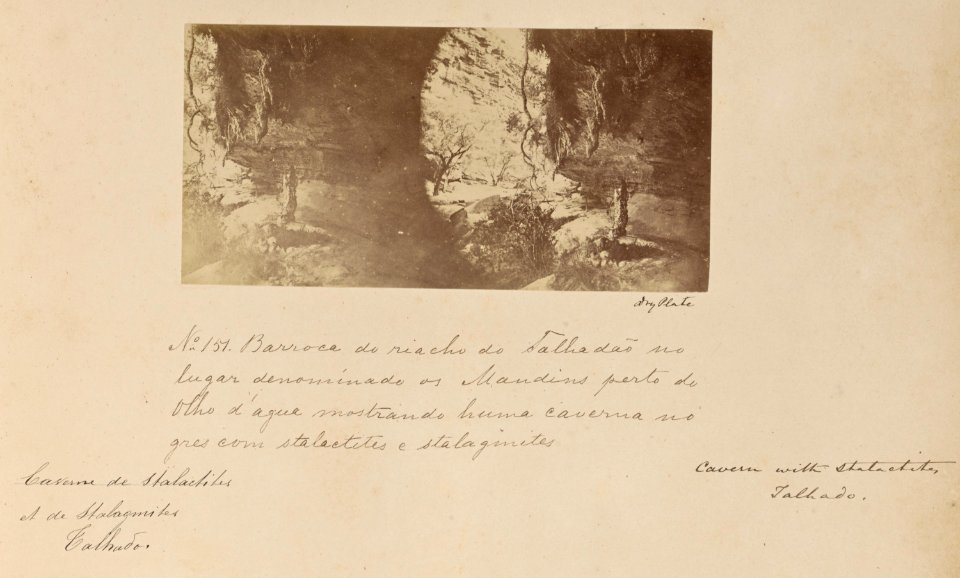 Dry Plate
Nº 151. Barroca do riacho do Talhadaõ no
lugar denominado os Mandins perto do
Olho d'agua mostrando huma caverna no
gres com stalactites e stalagmites
Caverne de Stalactites
et de Stalagmites
Talhadõ.
Cavern with Stalactites,
Talhado.